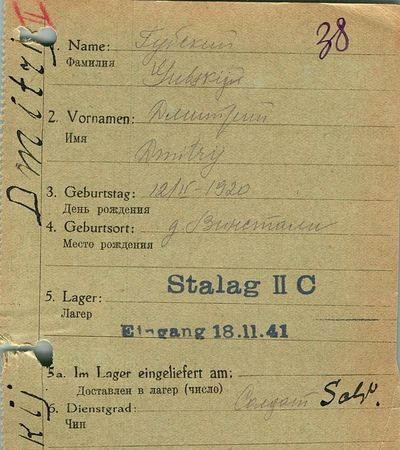 II
38
1. Name: Губский
Фамилия
Gubskij
2. Vornamen: Дмитрий
Имя
Dmitry
3. Geburtstag: 12/IV-1920
День рождения
4. Geburtsort: д.
Место рождения
Stalag II C
5. Lager:
Лагер
Eingang 18.11.41
5a. Im Lager eingeliefert am:
Доставлен в лагер (число)
6. Dienstgrad: Солдат Sold.
Чин
Dmitrij
kij